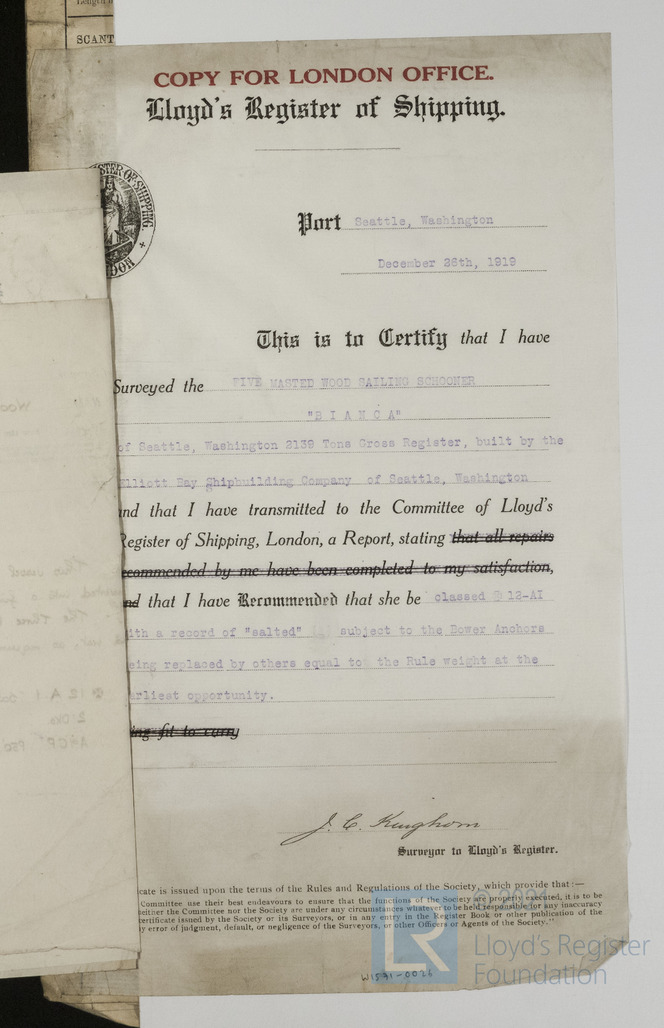 Length
SCANT
COPY FOR LONDON OFFICE.
Lloyd's Register of Shipping.
STER OF SHIPPING.
DON
Port Seattle, Washington
December 26th, 1919
This is to Certify that I have
Surveyed the FIVE MASTED WOOD SAILING SCHOONER
"B I A N C A"
of Seattle, Washington 2139 Tons Gross Register, built by the
Elliott Bay Shipbuilding Company of Seattle, Washington
and that I have transmitted to the Committee of Lloyd's
Register of Shipping, London, a Report, stating that all repairs
ecommended by me have been completed to my satisfaction,
nd that I have Recommended that she be classed @ 12-AI
ith a record of "salted" subject to the Bower Anchors
eing replaced by others equal to the Rule weight at the
arliest opportunity.
ing fit to carry
J. C. Kinghorn
Surveyor to Lloyd's Register.
cate is issued upon the terms of the Rules and Regulations of the Society, which provide that :—
Committee use their best endeavours to ensure that the functions of the Society are properly executed, it is to be
either the Committee nor the Society are under any circumstances whatever to be held responsible for any inaccuracy
ertificate issued by the Society or its Surveyors, or in any entry in the Register Book or other publication of the
y error of judgment, default, or negligence of the Surveyors, or other Officers or Agents of the Society."
LR
Lloyd's Register
Foundation
W1591-0026